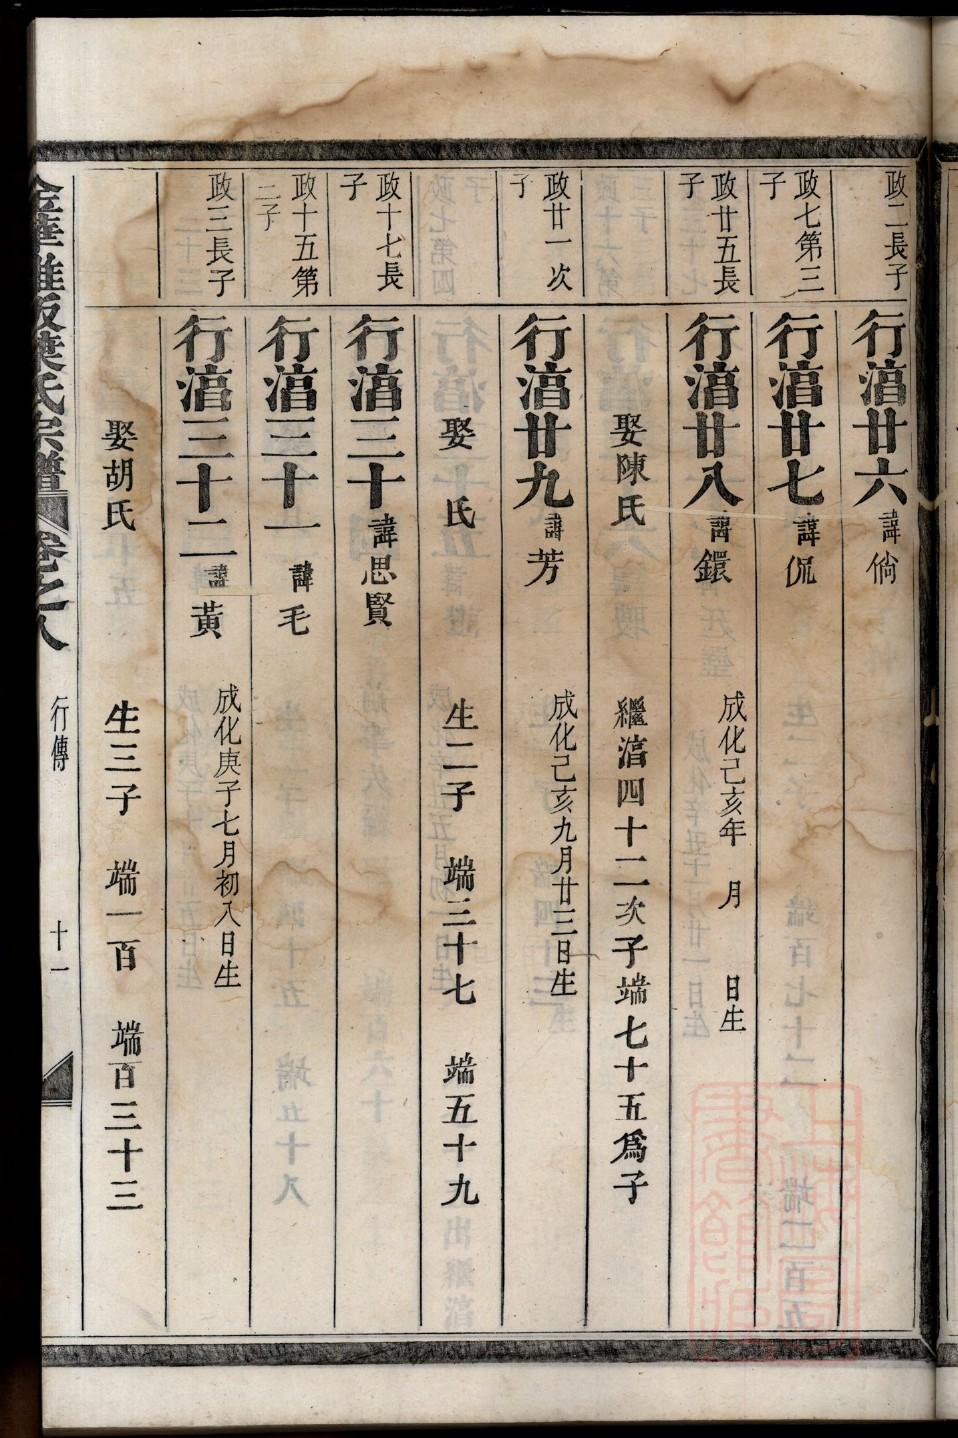 政二長子
行湇廿六諱倘
政七第三子
行湇廿七諱侃
政廿五長子
行湇廿八諱鐶
成化己亥年 月 日生
娶陳氏
繼湇四十二次子端七十五爲子
政廿一次子
行湇廿九諱芳
成化己亥九月廿三日生
娶 氏
生二子 端三十七 端五十九
政十七長子
行湇三十諱思賢
政十五第二子
行湇三十一諱毛
政三長子
行湇三十二諱黃
成化庚子七月初入日生
娶胡氏
生三子 端一百 端百三十三
葉氏宗譜 卷之八 行傳 十一